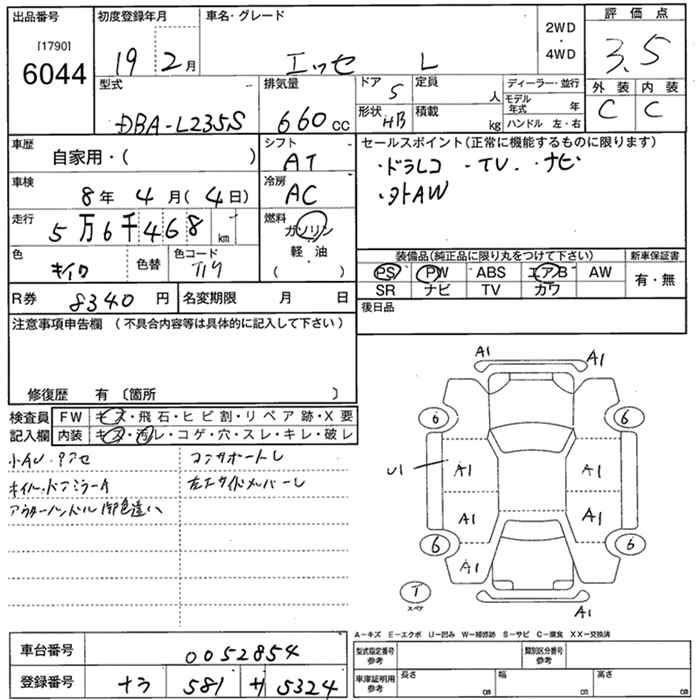 出品番号 初度登録年月 車名・グレード 2WD・4WD 評価点
[1790]
6044
19 2月 エッセ L
3.5
型式 排気量 ドア 5 定員 人 ディーラー・並行 外装 内装
DBA-L235S 660cc 形状 HB 積載 kg モデル年式 年 C C
ハンドル 左・右
車歴 自家用・( ) シフト AT セールスポイント(正常に機能するものに限ります)
・ドラレコ ・TV ・ナビ
車検 8年 4月(4日) 冷房 AC
・社外AW
走行 5万6千468km 燃料 ガソリン
軽・油
( )
色 キイロ 色替 色コード
装備品(純正品に限り丸をつけて下さい) 新車保証書
PS PW ABS エアB AW 有・無
SR ナビ TV カワ
R券 8340円 名変期限 月 日 後日品
注意事項申告欄(不具合内容等は具体的に記入して下さい)
修復歴 有〔箇所 〕
検査員 FW キズ・飛石・ヒビ割・リペア跡・X要
記入欄 内装 キズ・汚レ・コゲ・穴・スレ・キレ・破レ
コアサポートL
左右サイドメンバーL
アウターハンドル
A1 A1
6 6
U1 A1 A1
A1 A1
6 6
A1
T
スペア
A1
A-キズ E-エクボ U-凹み W-補修跡 S-サビ C-腐食 XX-交換済
車台番号 0052854 型式指定番号 参考 類別区分番号 参考
登録番号 ナラ 581 サ 5324 車庫証明用 参考 長さ cm 幅 cm 高さ cm